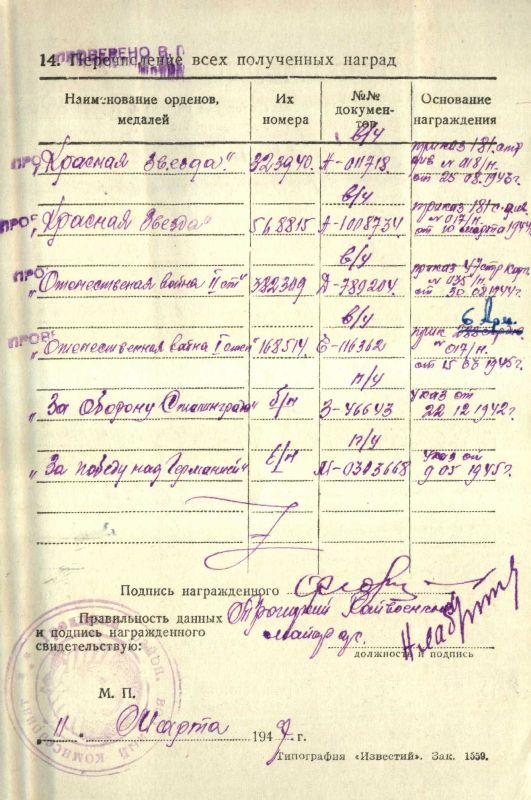 ПРОВЕРЕНО В.
14. Перечисление всех полученных наград
Наименование орденов,
медалей
Их
номера
№№
документов
Основание
награждения
ПРО
„Красная Звезда“
323940.
в/у
А-011718.
приказ 181 стр
див № 018/н.
от 25 08.1943г.
ПРОВ
„Красная Звезда“
568815
в/у
А-1008734
приказ 181 с. див.
№ 017/н.
от 10 марта 194
ПРО
„Отечественая война II ст“
382309
в/у
Д-789204.
приказ 47 стр Корп.
№ 035/н.
от 30 08 1944г.
ПРОВЕ
„Отечественная война I степ“
168514.
в/у
Е-116362
6 Арм.
прик
№ 017/н.
от 15 03 1945г.
„За Оборону Сталинграда“
б/н
п/у
З-46643
указ от
22 12 1942г.
„За победу над Германией“
б/н
п/у
М-0303668
указ от
9 05 1945г.
Подпись награжденного
Правильность данных
и подпись награжденного
свидетельствую:
Троицкий Райвоенком
майор
должность и подпись
М. П.
„11“ Марта 1947 г.
Типография «Известий». Зак. 1559.